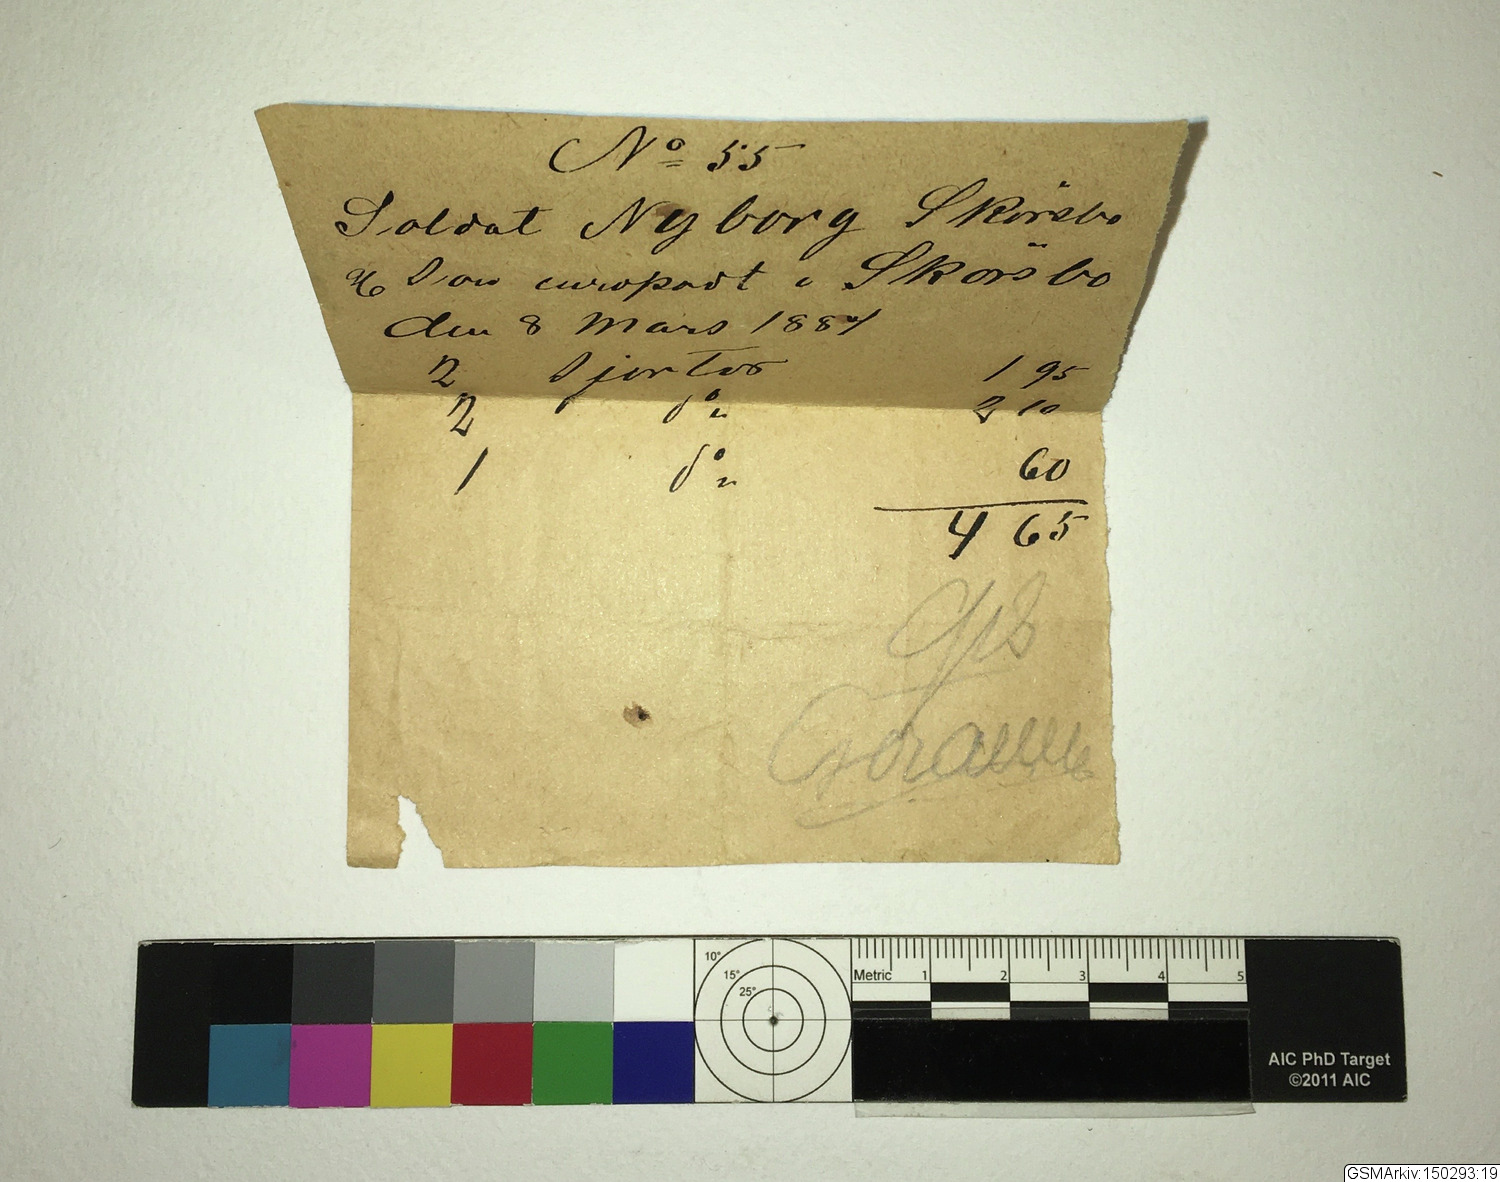 No 55
Soldat Nyborg Skörsbo
inropadt i Skörsbo
den 8 Mars 1884
2 Sjortor 1 95
2 do 2 10
1 do 60
4 65
10°
15°
25°
Metric 1 2 3 4 5
AIC PhD Target
©2011 AIC
GSMArkiv:150293:19